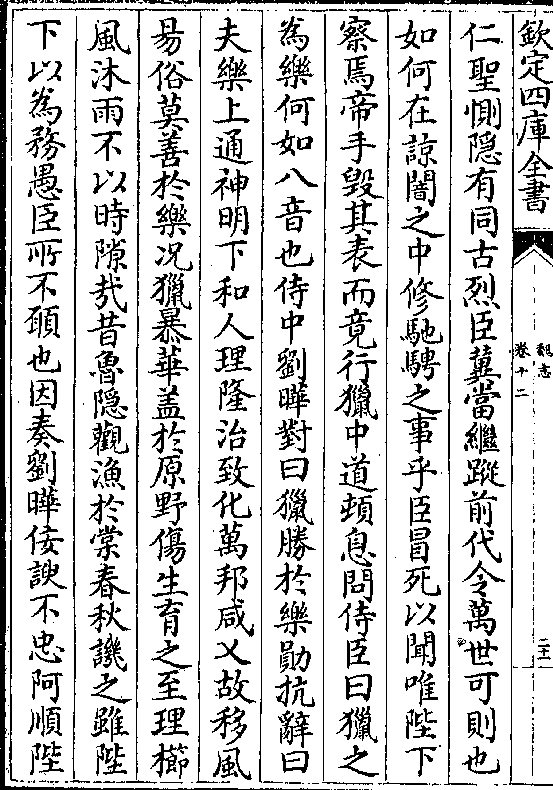 欽定四庫全書
魏志
卷十二
二十一
仁聖惻隐有同古烈臣冀當繼蹤前代令萬世可則也
如何在諒闇之中修馳騁之事乎臣冒死以聞唯陛下
察焉帝手毀其表而竟行獵中道頓息問侍臣曰獵之
為樂何如八音也侍中劉曄對曰獵勝於樂勛抗辭曰
夫樂上通神明下和人理隆治致化萬邦咸乂故移風
昜俗莫善於樂况獵暴華盖於原野傷生育之至理櫛
風沐雨不以時隙㢤昔魯隐觀漁於棠春秋譏之雖陛
下以為務愚臣所不願也因奏劉曄佞諛不忠阿順陛